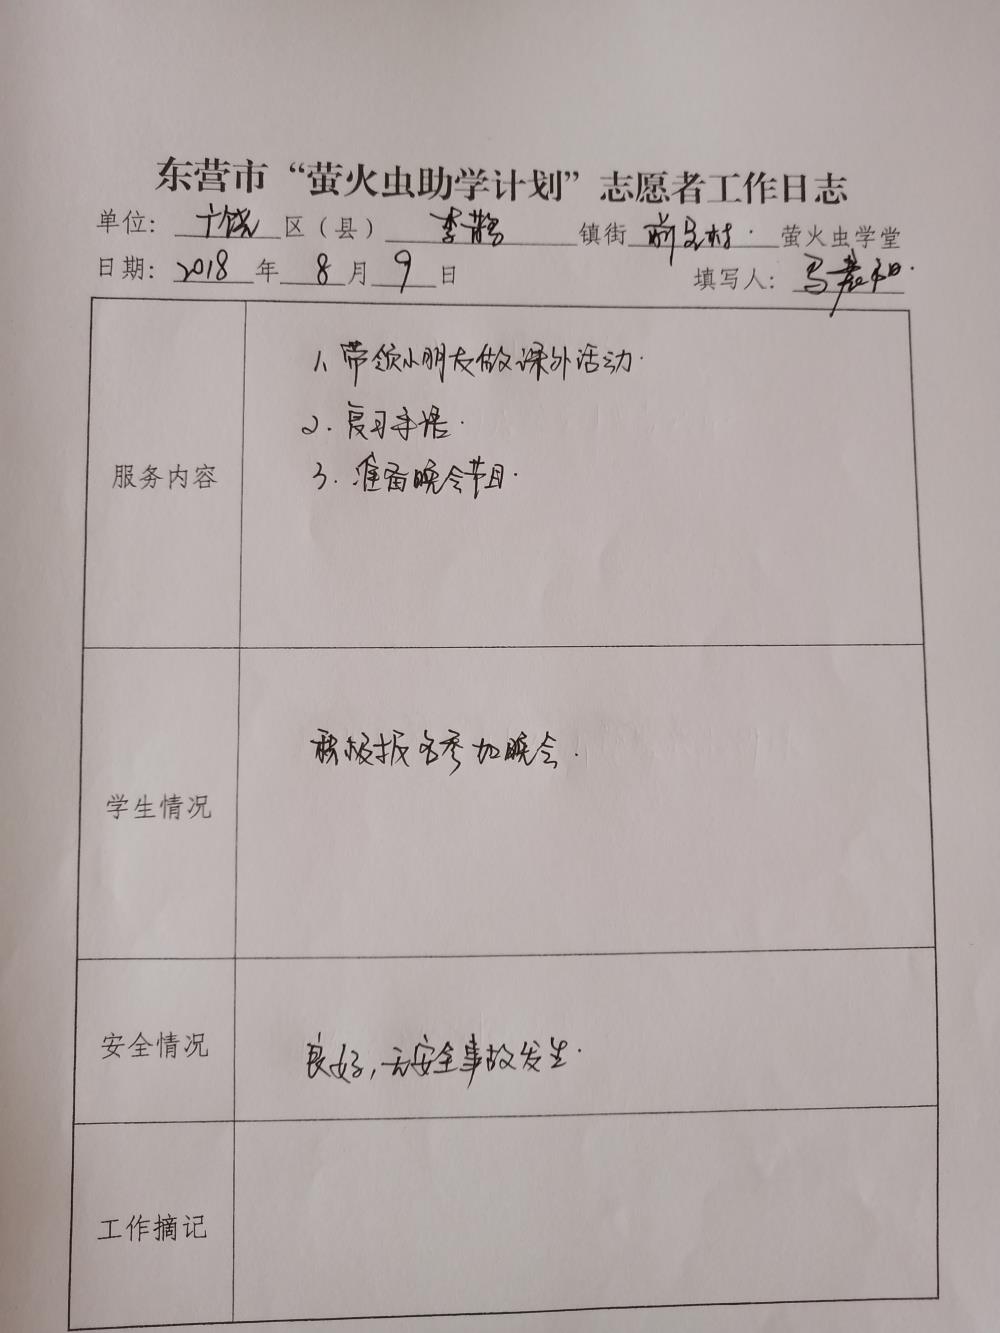 东营市“萤火虫助学计划”志愿者工作日志
单位：广饶区（县）李鹊镇街前吴村·萤火虫学堂
日期：2018年8月9日 填写人：马
服务内容
1、带领小朋友做课外活动·
2·复习手语·
3·准备晚会节目·
学生情况
积极报名参加晚会·
安全情况
良好，无安全事故发生·
工作摘记